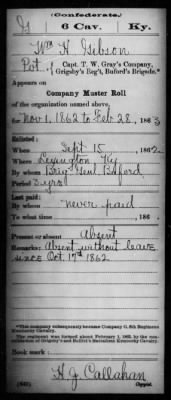 (Confederate.)
G 6 Cav. Ky.
Wm H. Gibson
Pvt. of Capt. T. W. Gray's Company,
Grigsby's Reg't, Buford's Brigade.*
Appears on
Company Muster Roll
of the organization named above,
for Nov 1, 1862 to Feb 28, 1863
Enlisted:
When Sept 15, 1862
Where Lexington Ky
By whom Brig Genl Buford
Period 3 yrs
Last paid:
By whom never paid
To what time , 186 .
Present or absent Absent
Remarks: Absent without leave
since Oct 17th 1862
*This company subsequently became Company G, 6th Regiment
Kentucky Cavalry.
The regiment was formed about February 1, 1863, by the con-
solidation of Grigsby's and Battalion Kentucky Cavalry.
Book mark:
H. J. Callahan
Copyist.